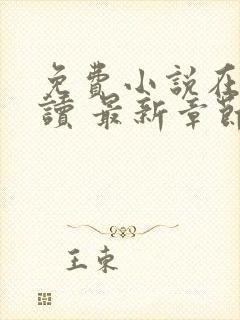 免費小說在
讀 最新章節
王東